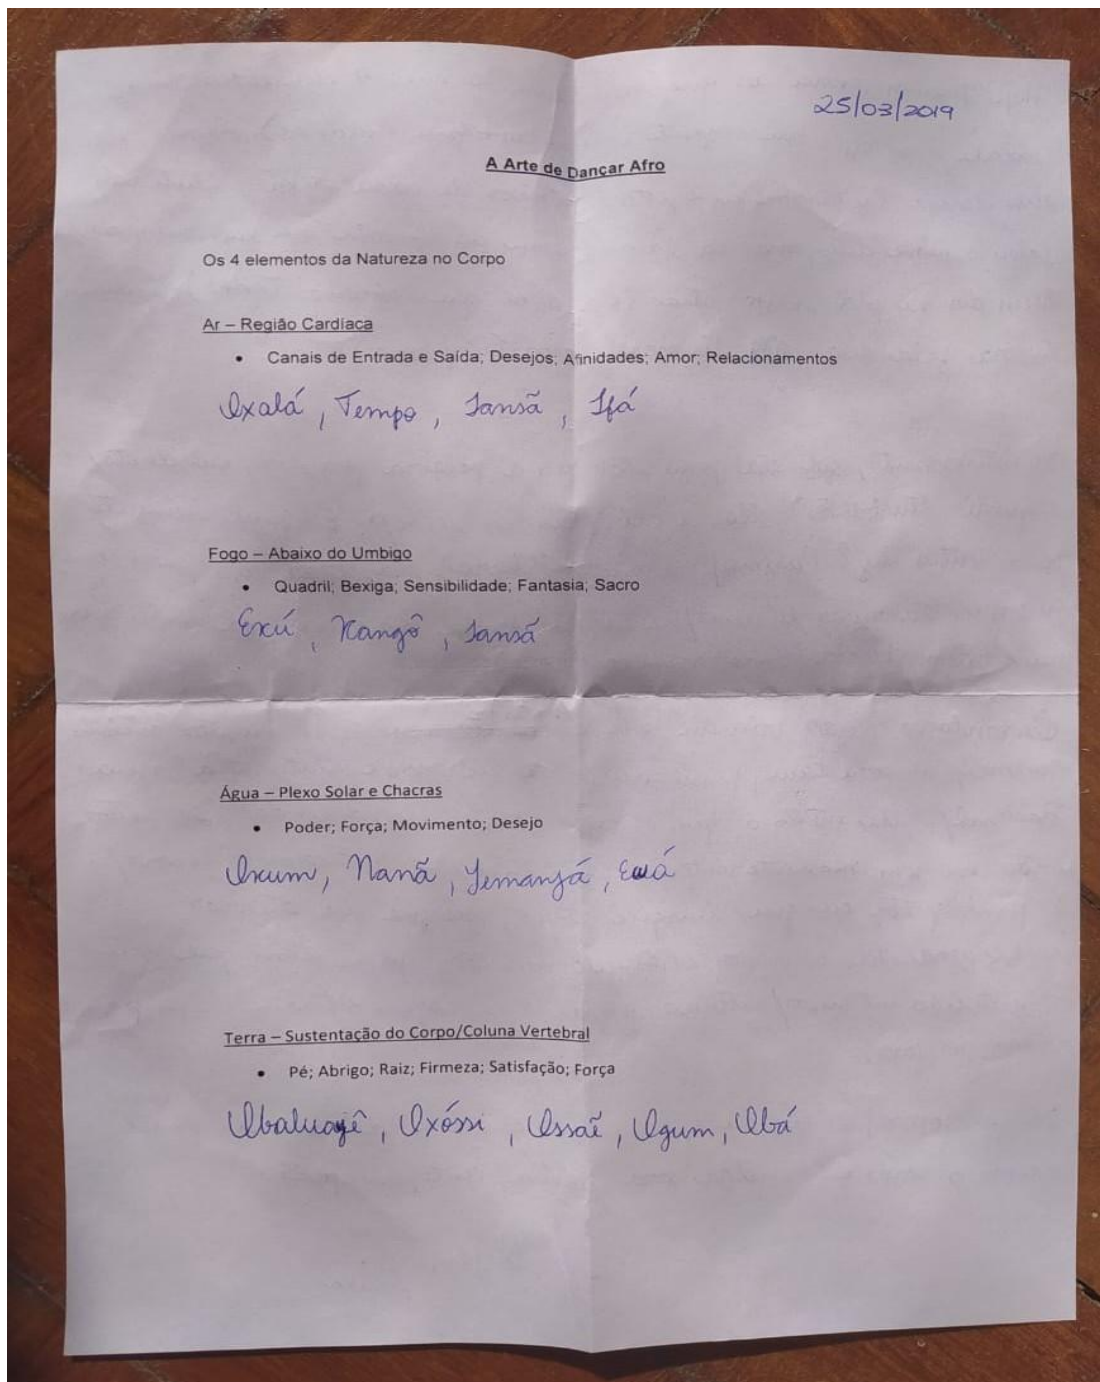 25/03/2019
A Arte de Dançar Afro
Os 4 elementos da Natureza no Corpo
Ar – Região Cardíaca
• Canais de Entrada e Saída; Desejos; Afinidades; Amor; Relacionamentos
Oxalá, Tempo, Iansã, Ifá
Fogo – Abaixo do Umbigo
• Quadril; Bexiga; Sensibilidade; Fantasia; Sacro
Exú, Xangô, Iansã
Água – Plexo Solar e Chacras
• Poder; Força; Movimento; Desejo
Oxum, Nanã, Yemanjá, Ewá
Terra – Sustentação do Corpo/Coluna Vertebral
• Pé; Abrigo; Raiz; Firmeza; Satisfação; Força
Obaluayê, Oxóssi, Ossaĩ, Ogum, Obá